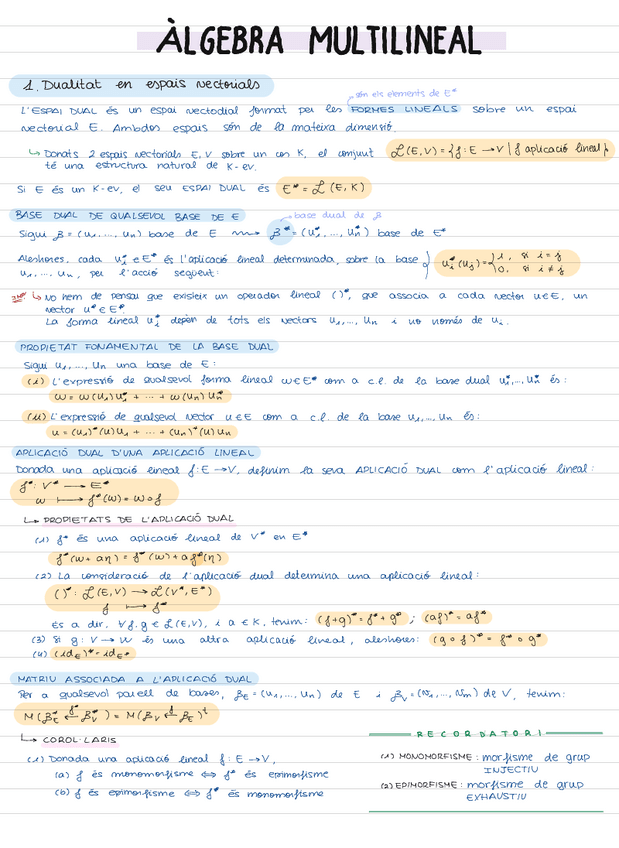 ÀLGEBRA MULTILINEAL
1. Dualitat en espais vectorials
són els elements de E*
L'ESPAI DUAL és un espai vectodial format per les FORMES LINEALS sobre un espai
vectorial E. Ambdos espais són de la mateixa dimensió.
↳ Donats 2 espais vectorials E, V sobre un cos K, el conjunt L(E,V) = {f: E → V | f aplicació lineal}
té una estructura natural de K-ev.
Si E és un K-ev, el seu ESPAI DUAL és E* = L(E, K)
BASE DUAL DE QUALSEVOL BASE DE E
base dual de β
Sigui β = (u₁, ..., uₙ) base de E ⟿ β* = (u₁*, ..., uₙ*) base de E*
Aleshores, cada uᵢ* ∈ E* és l'aplicació lineal determinada, sobre la base
u₁, ..., uₙ, per l'acció següent:
uᵢ*(uⱼ) = { 1, si i = j
0, si i ≠ j
↳ No hem de pensar que existeix un operador lineal ( )*, que associa a cada vector u ∈ E, un
vector u* ∈ E*.
La forma lineal uᵢ* depèn de tots els vectors u₁, ..., uₙ i no només de uᵢ.
PROPIETAT FONAMENTAL DE LA BASE DUAL
Sigui u₁, ..., uₙ una base de E:
(i) L'expressió de qualsevol forma lineal ω ∈ E* com a c.l. de la base dual u₁*, ..., uₙ* és:
ω = ω(u₁)u₁* + ... + ω(uₙ)uₙ*
(ii) L'expressió de qualsevol vector u ∈ E com a c.l. de la base u₁, ..., uₙ és:
u = (u₁)*(u)u₁ + ... + (uₙ)*(u)uₙ
APLICACIÓ DUAL D'UNA APLICACIÓ LINEAL
Donada una aplicació lineal f: E → V, definim la seva APLICACIÓ DUAL com l'aplicació lineal:
f*: V* → E*
ω ↦ f*(ω) = ω∘f
↳ PROPIETATS DE L'APLICACIÓ DUAL
(1) f* és una aplicació lineal de V* en E*
f*(ω + aη) = f*(ω) + af*(η)
(2) La consideració de l'aplicació dual determina una aplicació lineal:
( )*: L(E,V) → L(V*,E*)
f ↦ f*
És a dir, ∀f, g ∈ L(E,V), i a ∈ K, tenim: (f+g)* = f* + g* ; (af)* = af*
(3) Si g: V → W és una altra aplicació lineal, aleshores: (g∘f)* = f*∘g*
(4) (id_E)* = id_E*
MATRIU ASSOCIADA A L'APLICACIÓ DUAL
Per a qualsevol parell de bases, β_E = (u₁, ..., uₙ) de E i β_V = (v₁, ..., vₘ) de V, tenim:
M(β_E* ←f*— β_V*) = M(β_V ←f— β_E)ᵗ
↳ COROL·LARIS
(1) Donada una aplicació lineal f: E → V,
(a) f és monomorfisme ⟺ f* és epimorfisme
(b) f és epimorfisme ⟺ f* és monomorfisme
RECORDATORI
(1) MONOMORFISME: morfisme de grup
INJECTIU
(2) EPIMORFISME: morfisme de grup
EXHAUSTIU